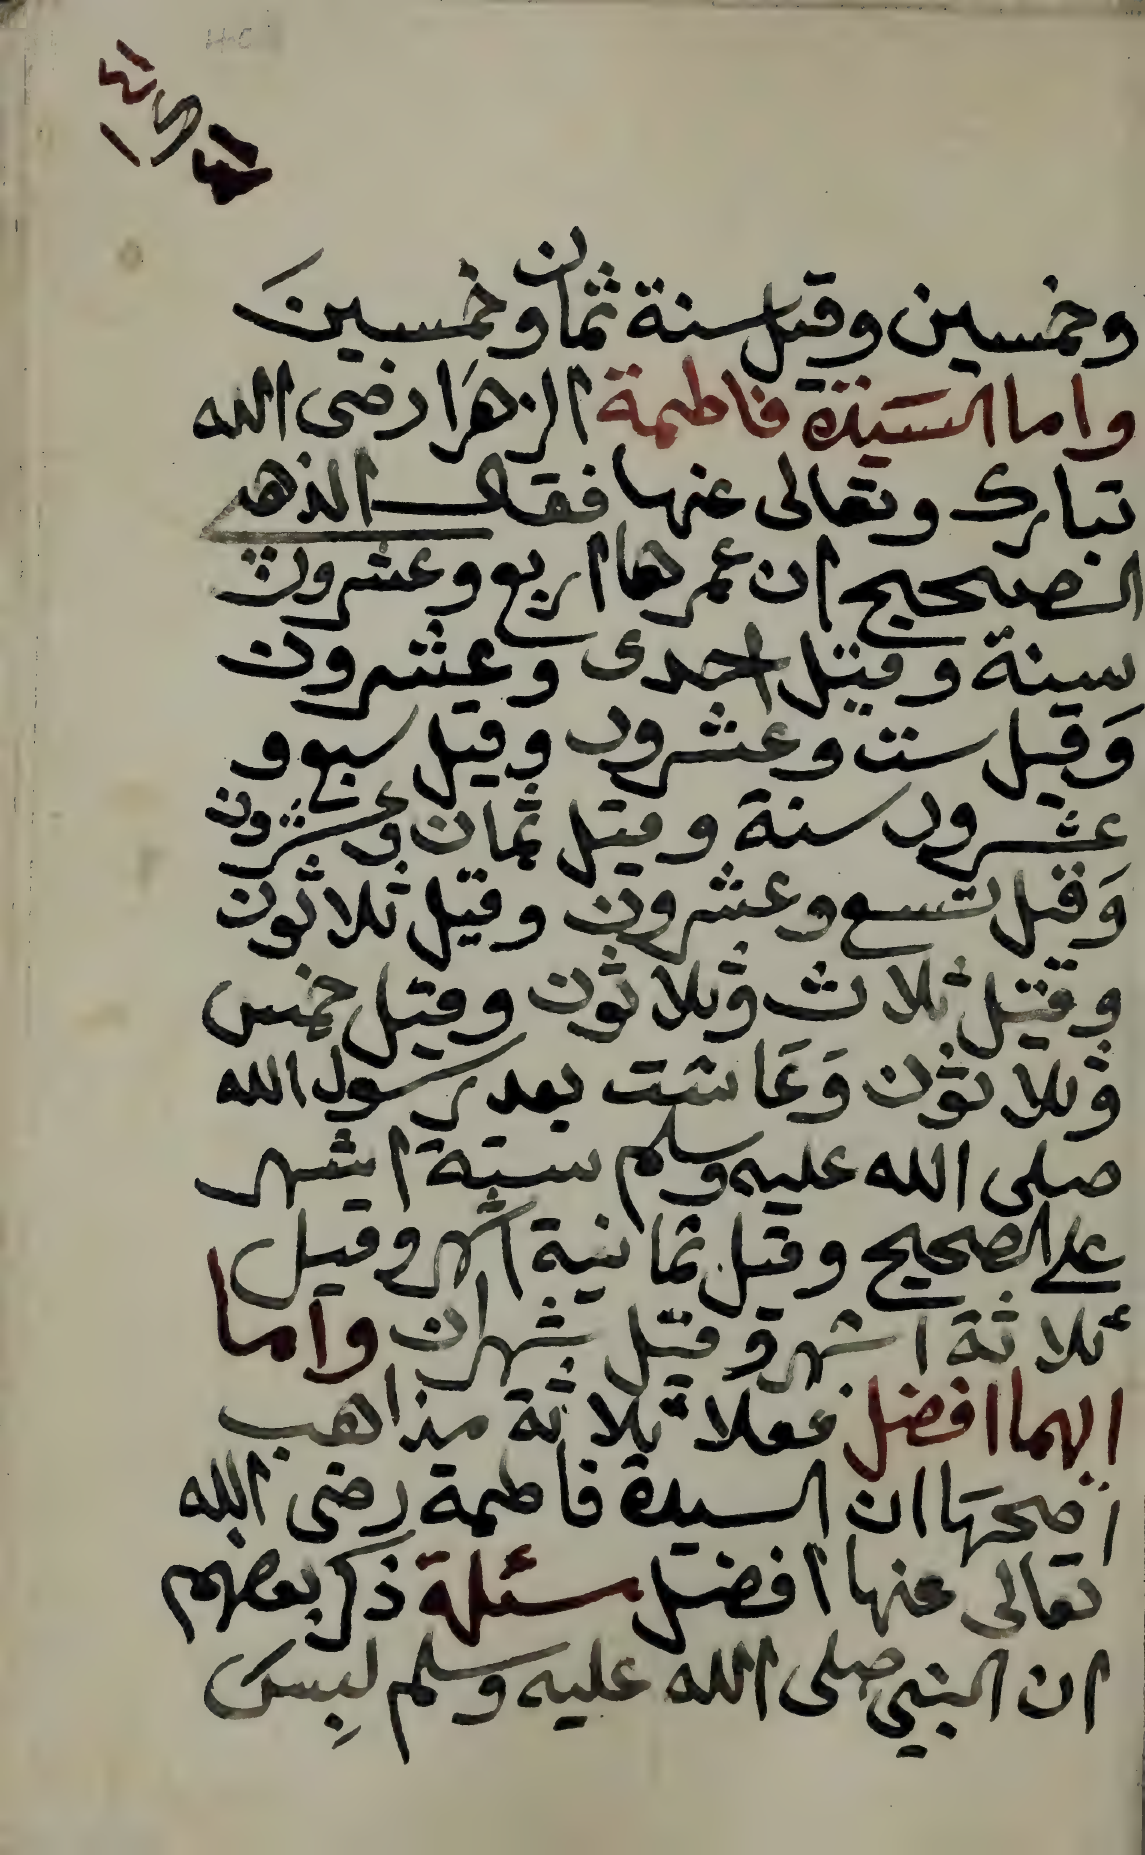 وخمسين وقيل سنة ثمان وخمسين
واما السيدة فاطمة الزهرا رضى الله
تبارك وتعالى عنها فقال الذهبي
الصحيح ان عمرها اربع وعشرون
سنة وقيل احدى وعشرون
وقيل ست وعشرون وقيل سبع و
عشرون سنة وقيل ثمان وعشرون
وقيل تسع وعشرون وقيل ثلاثون
وقيل ثلاث وثلاثون وقيل خمس
وثلاثون وعاشت بعد رسول الله
صلى الله عليه وسلم ستة اشهر
على الصحيح وقيل ثمانية اشهر وقيل
ثلاثة اشهر وقيل شهران واما
ايهما افضل فعلا ثلاثة مذاهب
اصحها ان السيدة فاطمة رضى الله
تعالى عنها افضل مسئلة ذكر بعضهم
ان النبي صلى الله عليه وسلم لبس